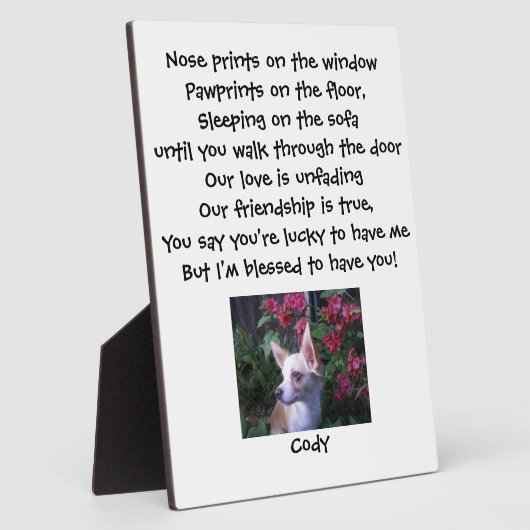 Nose prints on the window
Pawprints on the floor,
Sleeping on the sofa
until you walk through the door
Our love is unfading
Our friendship is true,
You say you're lucky to have me
But I'm blessed to have you!
Cody